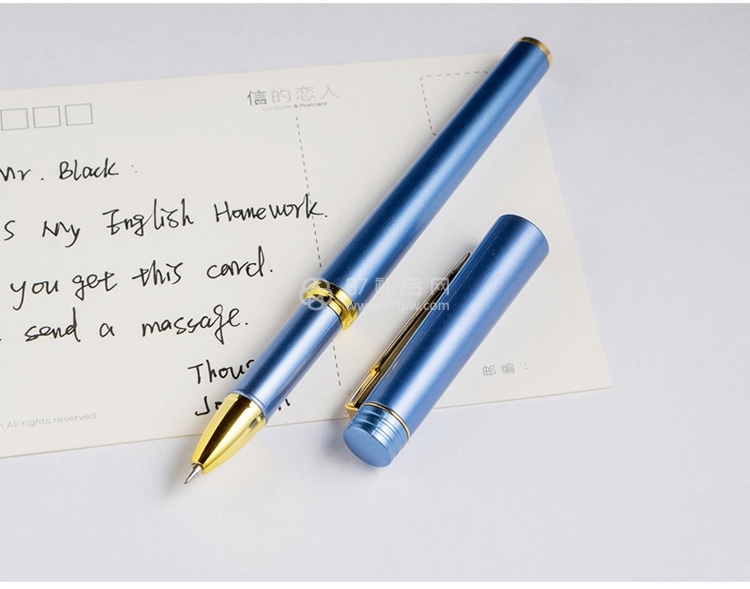 信的恋人
& Postcard
Mr. Black :
s My English Homework.
you get this card.
send a massage.
97礼品网
www.97lpw.com
邮编：
All rights reserved